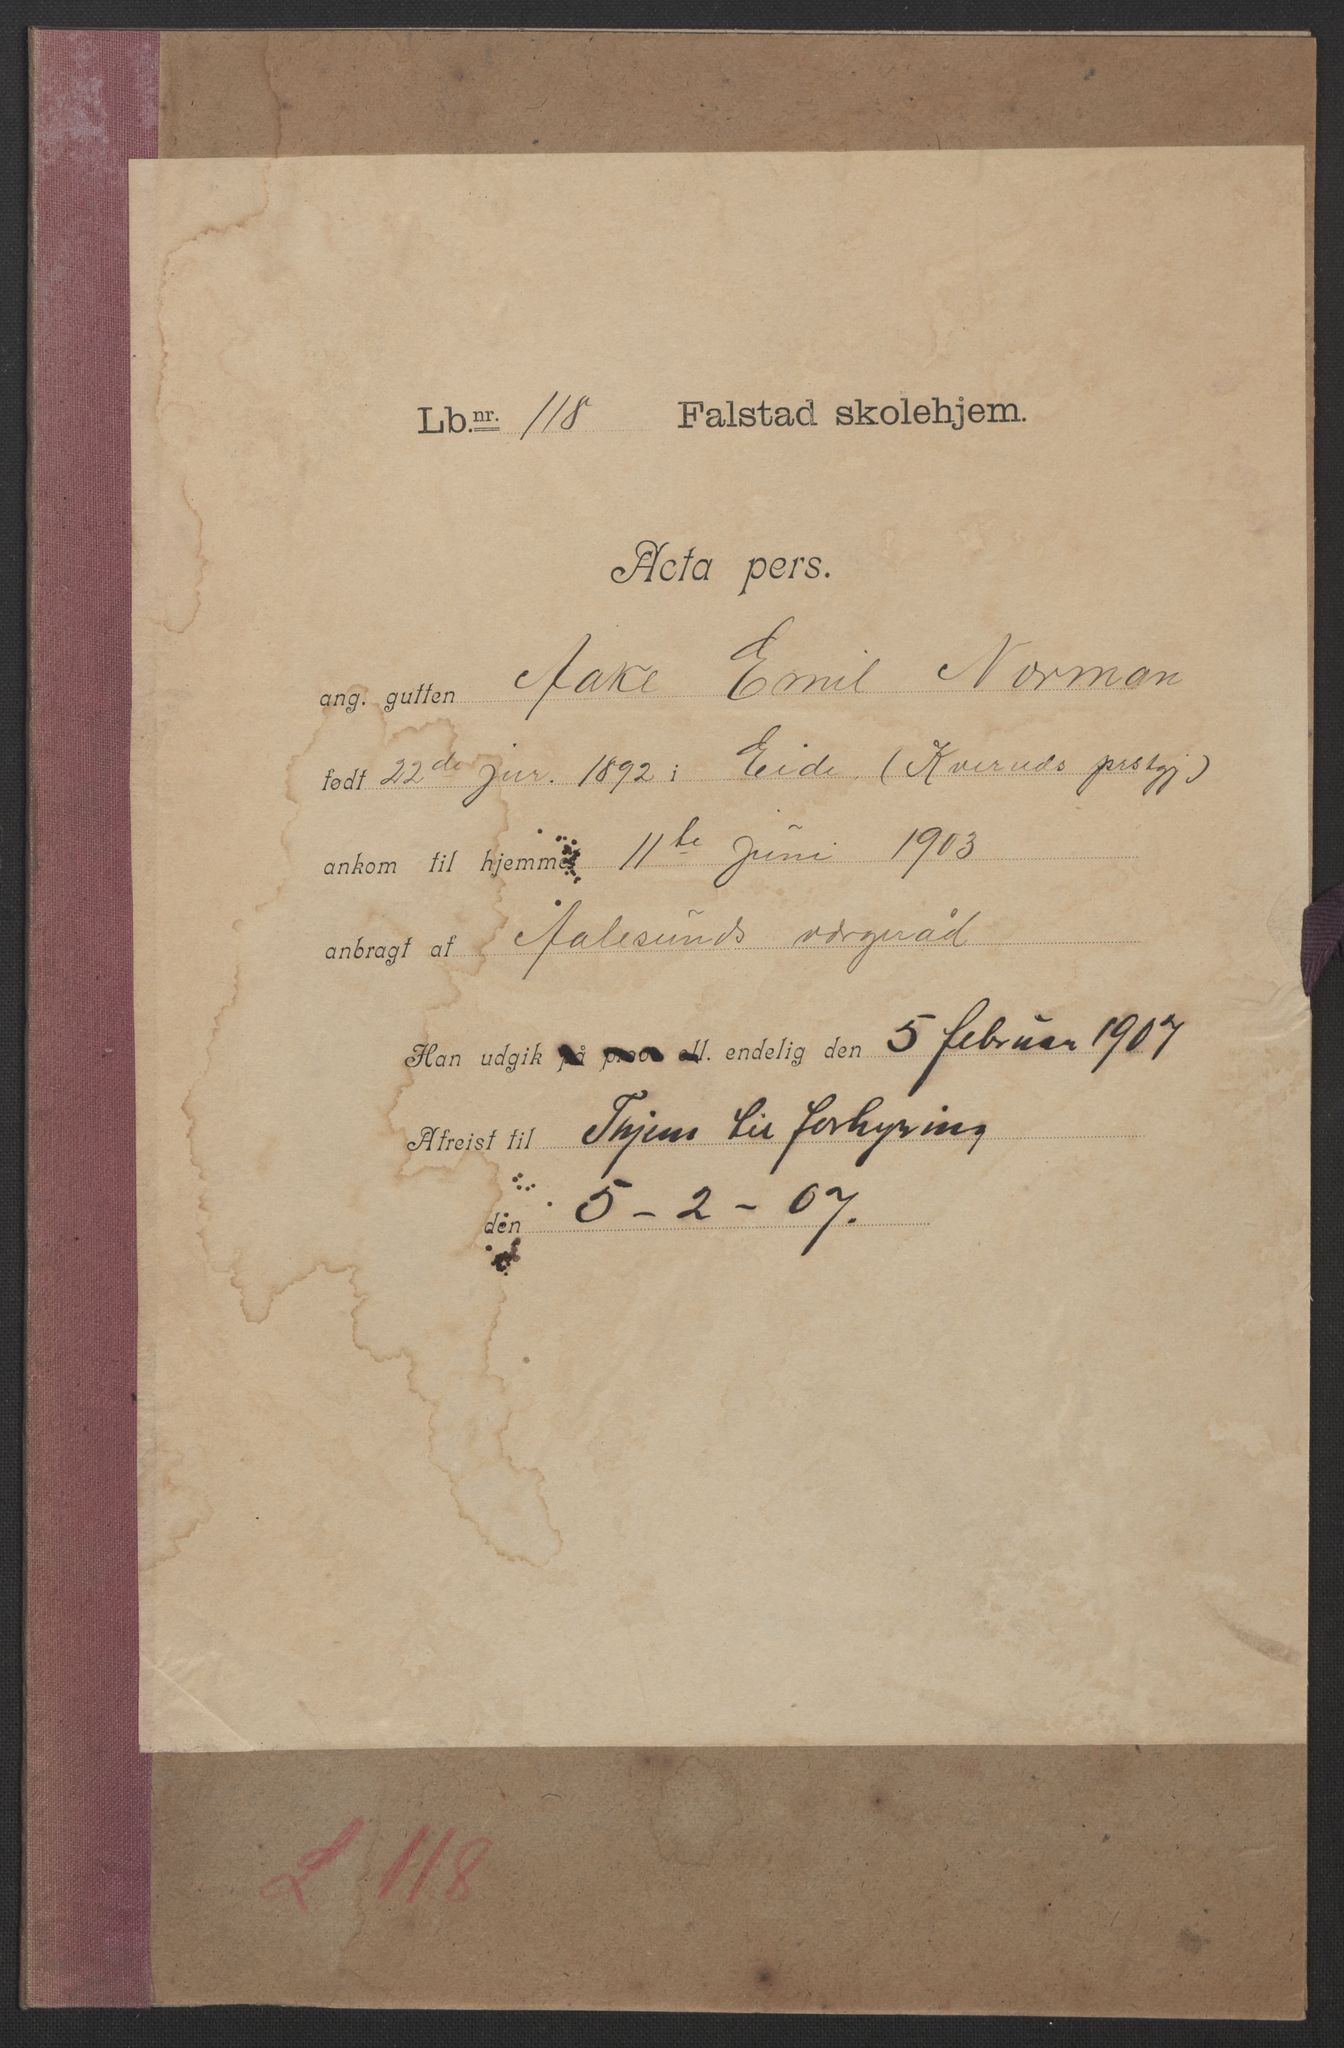 Lb.nr. 118 Falstad skolehjem.
Acta pers.
ang. gutten Aake Emil Norman
født 22de jun. 1892 i Eide (Kverneds prstgj)
ankom til hjemmet 11te juni 1903
anbragt af Aalesunds værgeråd
Han udgik på prøve ell. endelig den 5 februar 1907
Afreist til Thjem til forhyring
den 5-2-07.
L 118